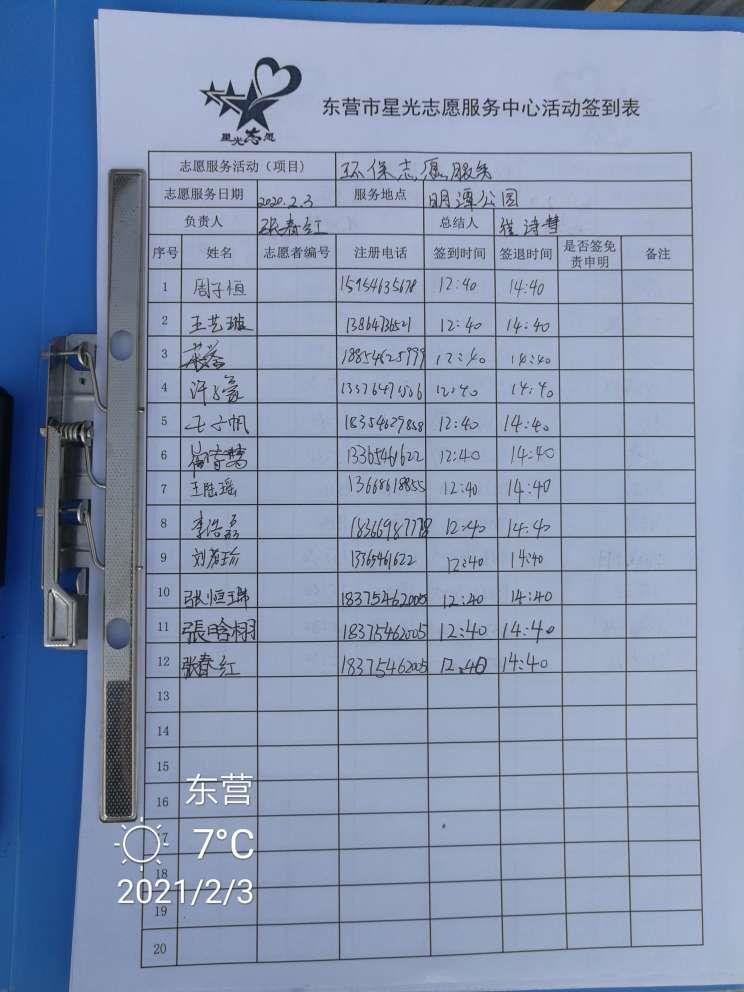 星光志愿
东营市星光志愿服务中心活动签到表
志愿服务活动（项目） 环保志愿服务
志愿服务日期 2020.2.3 服务地点 明潭公园
负责人 张春红 总结人 崔诗慧
序号 姓名 志愿者编号 注册电话 签到时间 签退时间 是否签免责申明 备注
1 周子恒 15954635678 12:40 14:40
2 王艺璇 13864736521 12:40 14:40
3 18854625999 12:40 14:40
4 许子豪 12:40 14:40
5 王子帆 18354629858 12:40 14:40
6 13365461622 12:40 14:40
7 王陆瑶 13668618855 12:40 14:40
8 李浩磊 18366987778 12:40 14:40
9 13365461622 12:40 14:40
10 18375462005 12:40 14:40
11 張晗栩 18375462005 12:40 14:40
12 张春红 18375462005 12:40 14:40
13
14
15
16
东营
7°C
2021/2/3
18
19
20